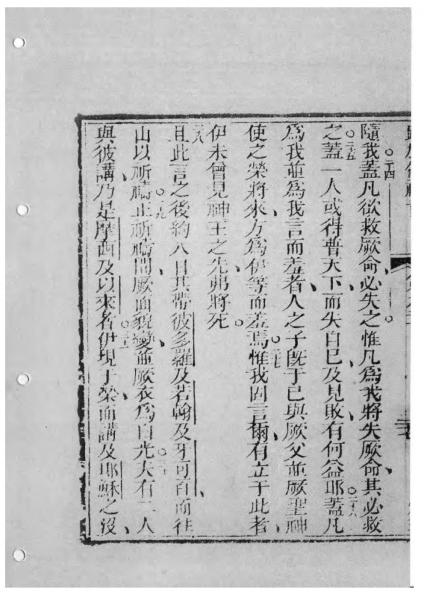 隨我蓋凡欲救厥命必失之惟凡爲我將失厥命其必救
之蓋一人或得普天下而失自己及見敗有何益耶蓋凡
爲我並爲我言而羞者人之子旣于己與厥父並厥聖神
使之榮將來方爲伊等而羞焉惟我固言爾有立于此者
伊未曾見神王之先弗將死
且此言之後約八日其帶彼多羅及若翰及牙可百而往
山以祈禱止祈禱間厥面貌變並厥衣爲白光夫有二人
與彼講乃是摩西及以來者伊現于榮而講及耶穌之沒